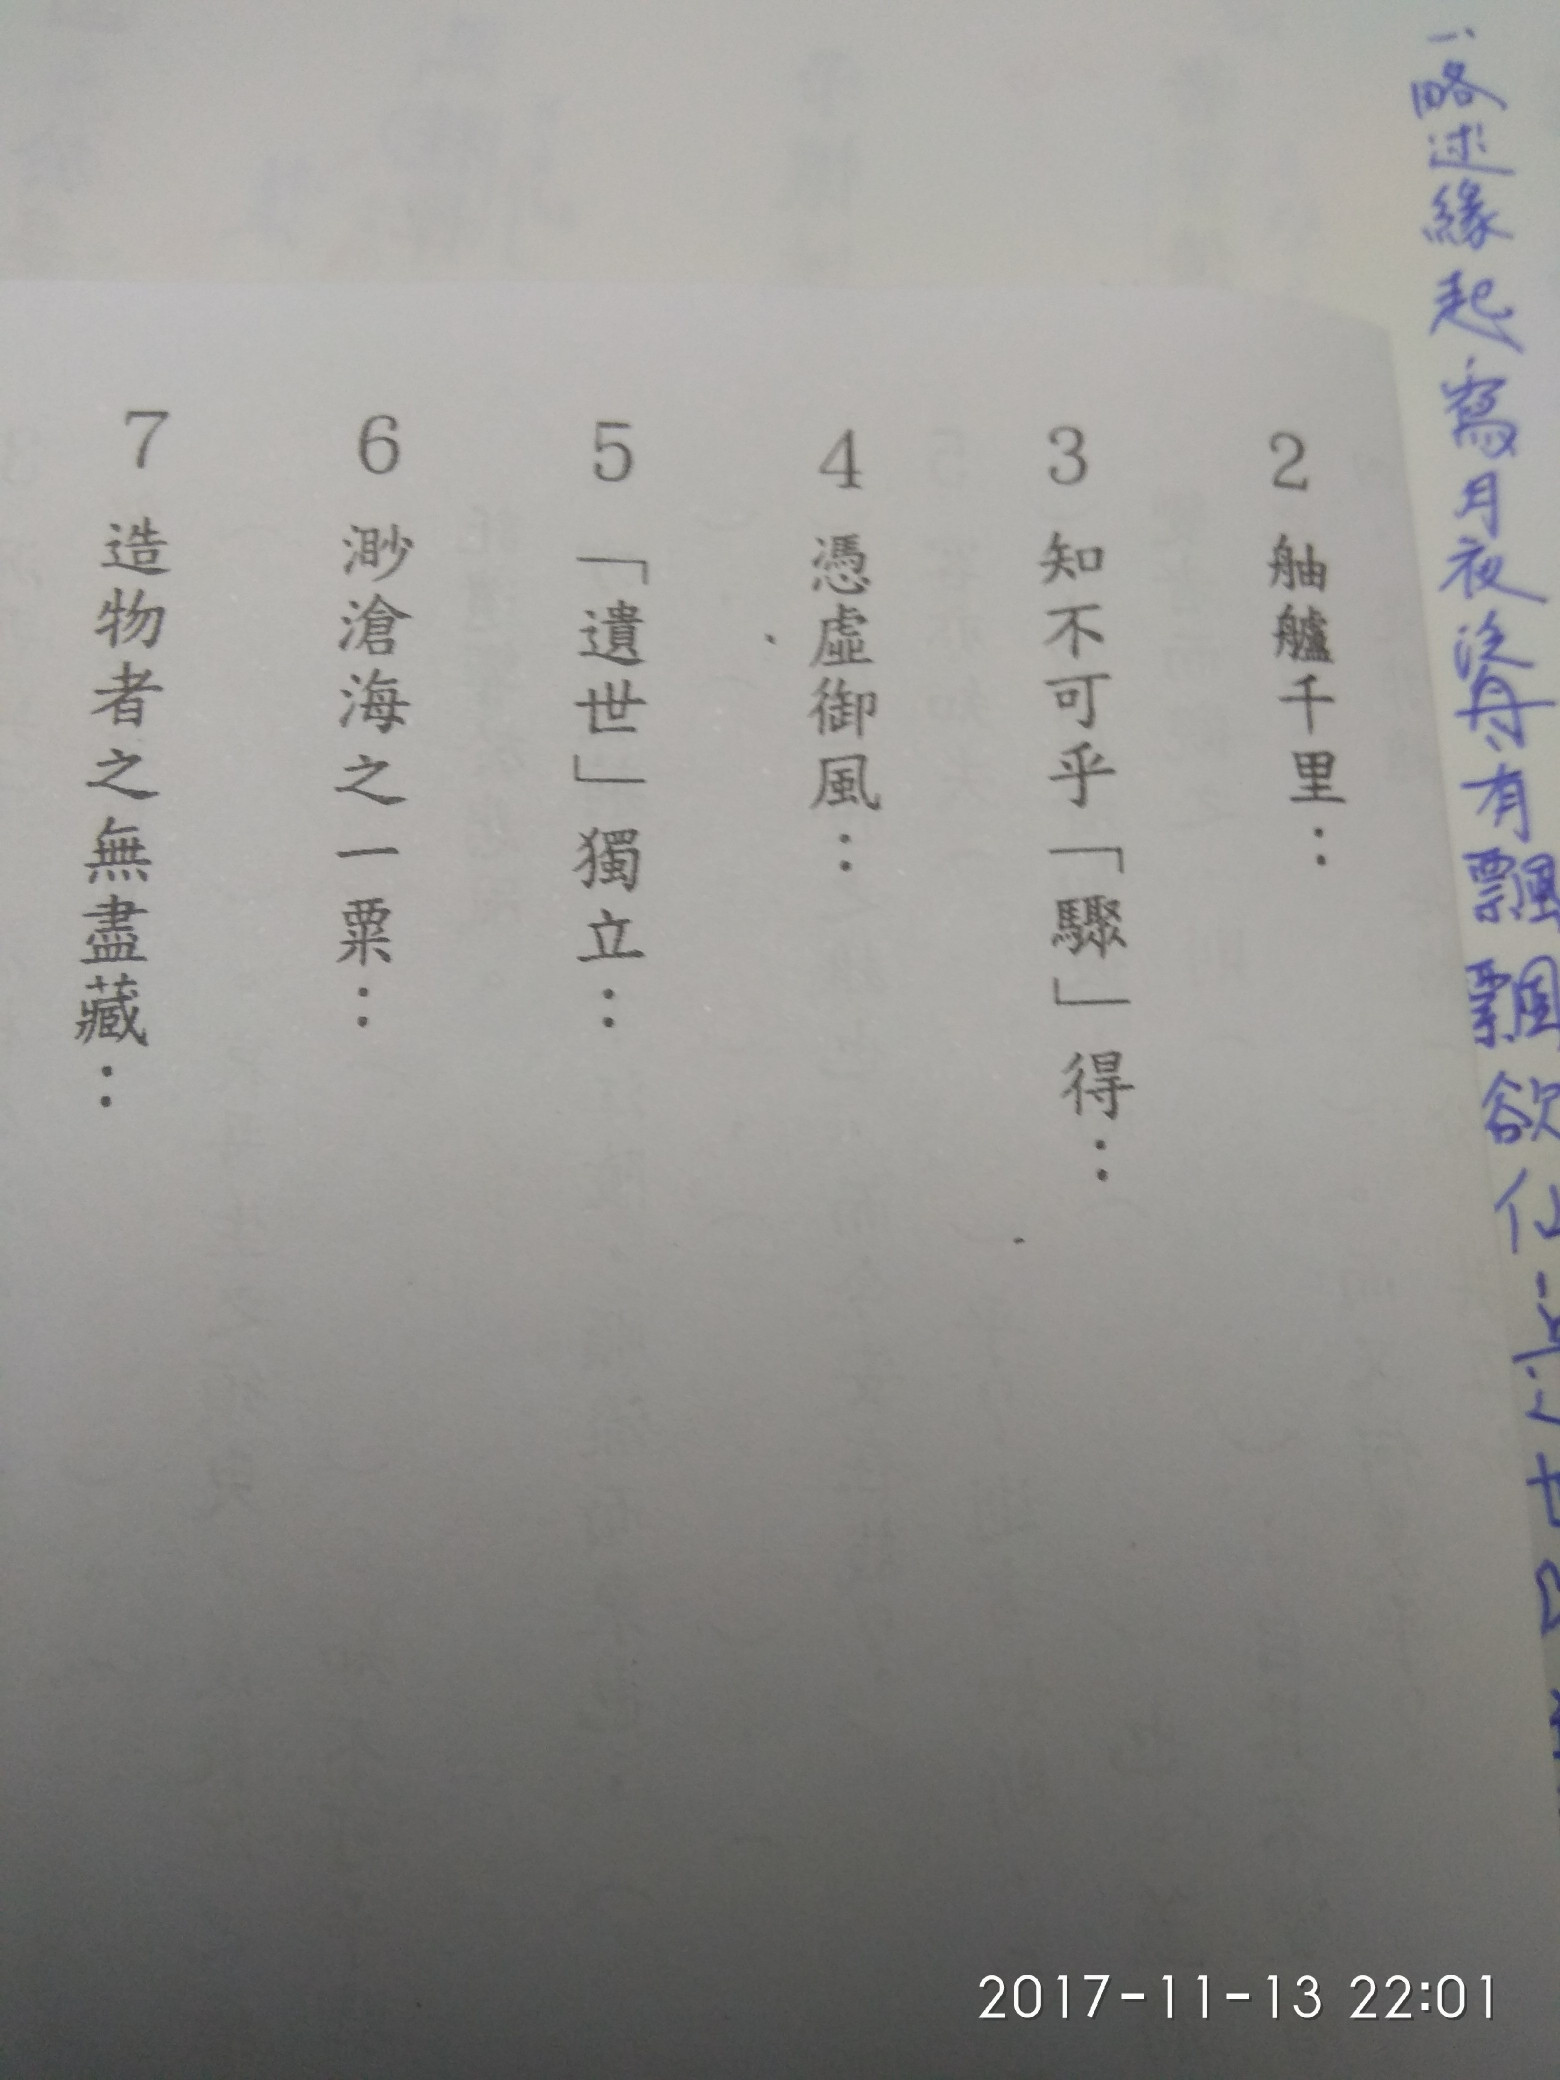 一、略述緣起,寫月夜泛舟,有飄飄欲仙
2 舳艫千里：
3 知不可乎「驟」得：
4 憑虛御風：
5 「遺世」獨立：
6 渺滄海之一粟：
7 造物者之無盡藏：
2017-11-13 22:01